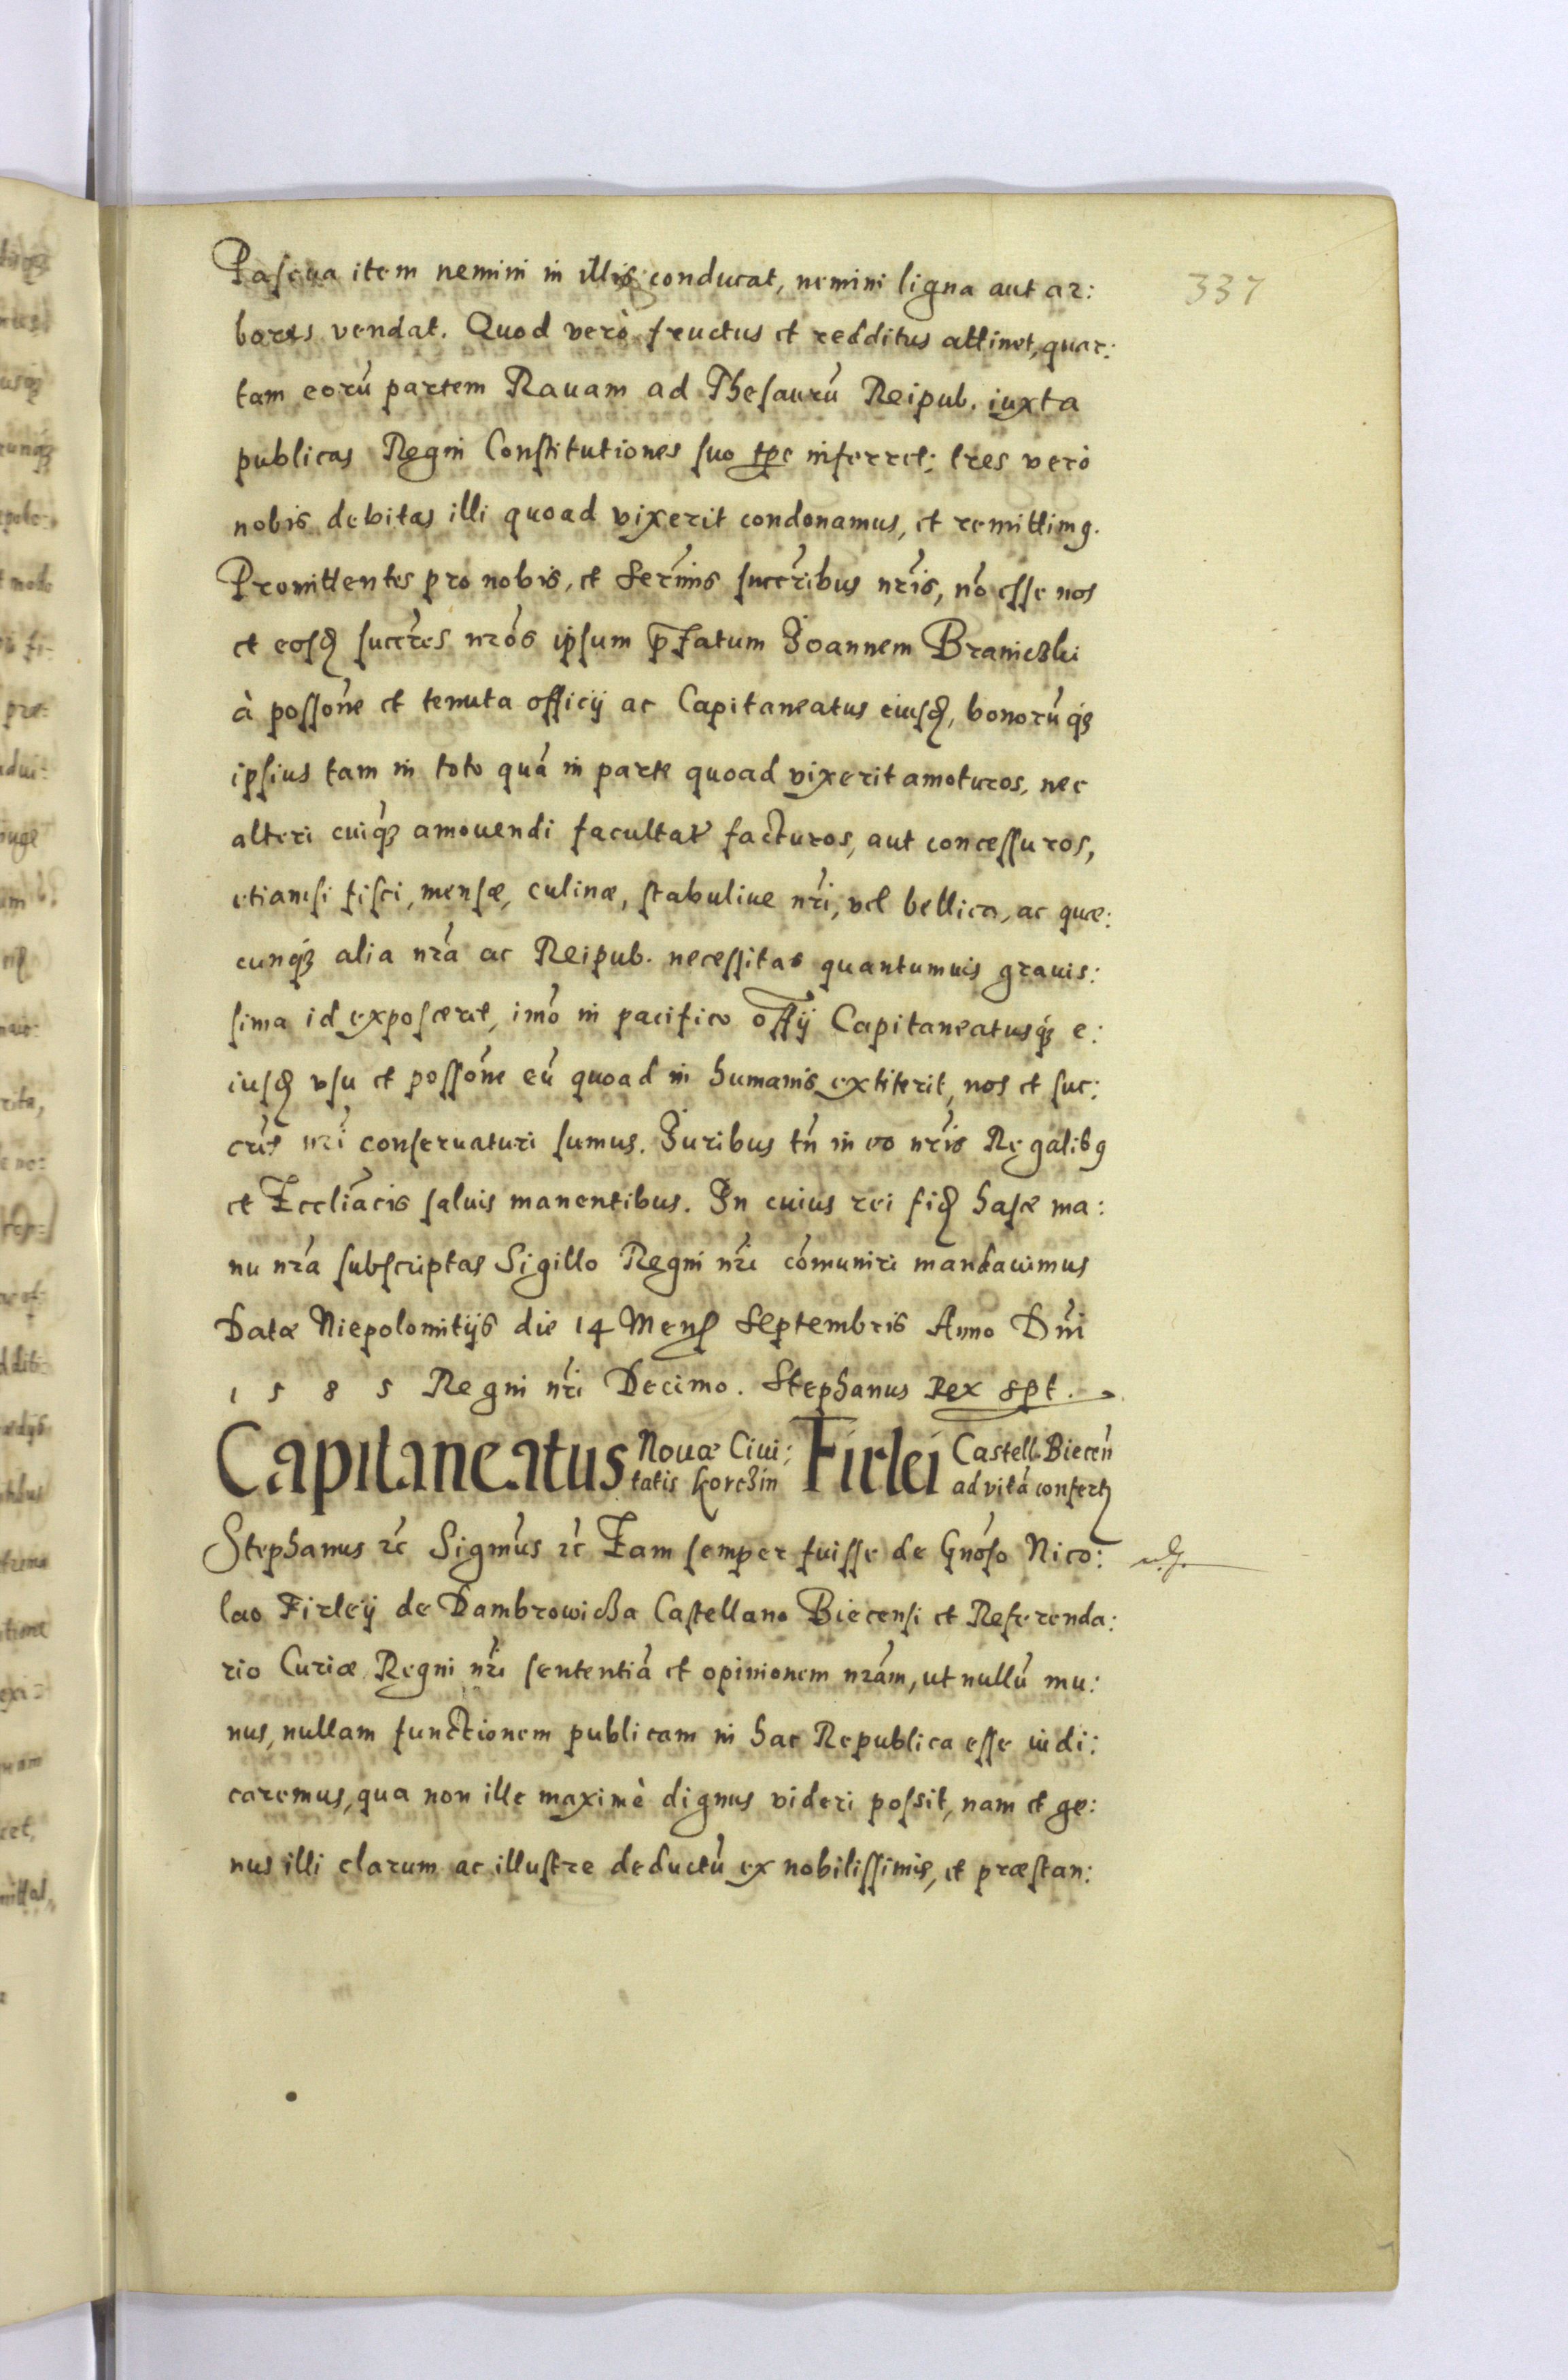 337
Pascua item nemini in illis conducat, nemini ligna aut ar:
bores vendat. Quod verò fructus et redditus attinet, quar:
tam eorũ partem Rauam ad Thesaurũ Reipub. iuxta
publicas Regni Constitutiones suo tp̃e inferret; tres verò
nobis debitas illi quoad vixerit condonamus, et remittimꝰ.
Promittentes pro nobis, et Serm̃is succr̃ibus nr̃is, nõ esse nos
et eosdꝫ succr̃es nr̃os ipsum p̃fatum Joannem Braniczki
à possoñe et tenuta officij ac Capitaneatus eiusdꝫ, bonorũqꝫ
ipsius tam in toto quã in parte quoad vixerit amoturos, nec
alteri cuiqꝫ amouendi facultatẽ facturos, aut concessuros,
etiamsi fisci, mensæ, culinæ, stabuliue nr̃i, vel bellica, ac quæ:
cunqꝫ alia nr̃a ac Reipub. necessitas quantumuis grauis:
sima id exposceret, imõ in pacifico offĩj Capitaneatusqꝫ e:
iusdꝫ vsu et possoñe eũ quoad in humanis extiterit, nos et suc:
cr̃es nr̃i conseruaturi sumus. Juribus tñ in eo nr̃is Regalibꝰ
et Eccliãcis saluis manentibus. In cuius rei fidꝫ hasce ma:
nu nr̃a subscriptas Sigillo Regni nr̃i cõmuniri mandauimus
Datæ Niepolomitijs die 14 Mens̃ Septembris Anno Dñi
1585 Regni nr̃i Decimo. Stephanus Rex sp̃t.
Capitaneatus Nouæ Ciui: tatis Korczin Firlei Castell. Biecen̄ ad vitã confertꝫ
Stephanus ꝛc̃ Sigm̃us ꝛc̃ Eam semper fuisse de Gnõso Nico:
lao Firleij de Dambrowicza Castellano Biecensi et Referenda:
rio Curiæ Regni nr̃i sententiã et opinionem nr̃am, ut nullũ mu:
nus, nullam functionem publicam in hac Republica esse iudi:
caremus, qua non ille maximè dignus videri possit, nam et ge:
nus illi clarum ac illustre deductũ ex nobilissimis, et præstan: